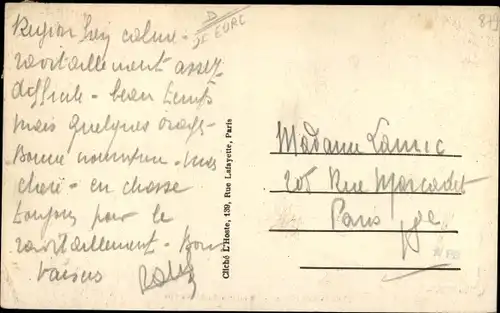 Région très calme -
ravitaillement assez
difficile - beau temps
mais quelques orages -
Bonne nourriture - mais
chère - en chasse
toujours pour le
ravitaillement - Bons
baisers
Cliché L'Hoste, 139, Rue Lafayette, Paris
Madame
205 Rue Marcadet
Paris